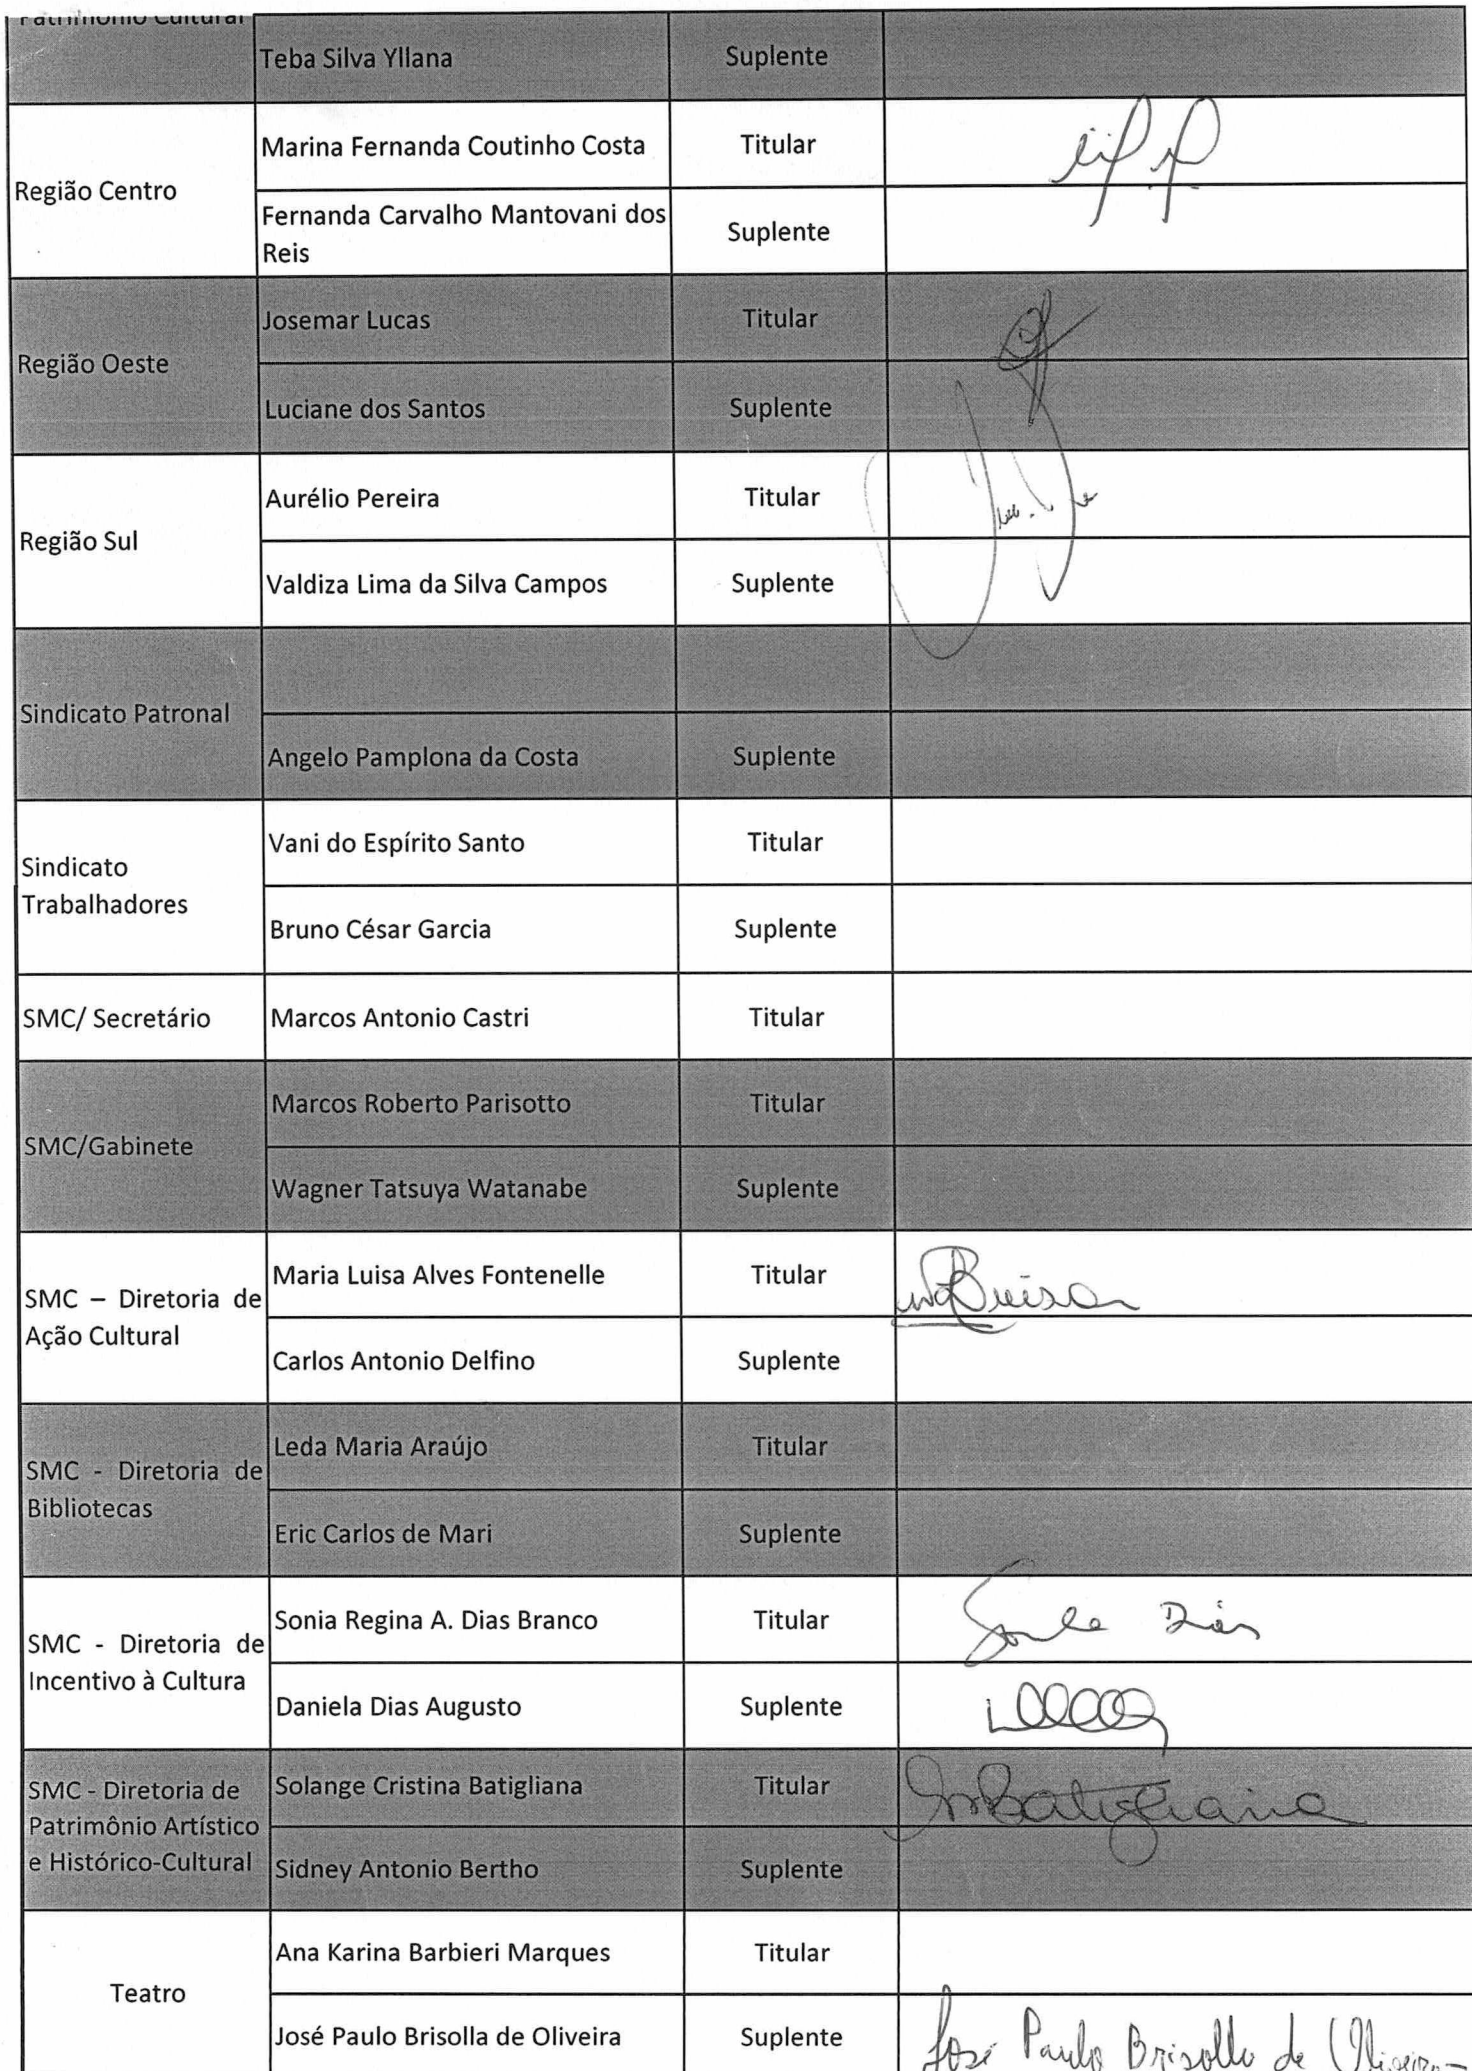 Patrimônio Cultural
Teba Silva Yllana Suplente
Região Centro
Marina Fernanda Coutinho Costa Titular
Fernanda Carvalho Mantovani dos
Reis
Suplente
Região Oeste
Josemar Lucas Titular
Luciane dos Santos Suplente
Região Sul
Aurélio Pereira Titular
Valdiza Lima da Silva Campos Suplente
Sindicato Patronal
Angelo Pamplona da Costa Suplente
Sindicato
Trabalhadores
Vani do Espírito Santo Titular
Bruno César Garcia Suplente
SMC/ Secretário Marcos Antonio Castri Titular
SMC/Gabinete
Marcos Roberto Parisotto Titular
Wagner Tatsuya Watanabe Suplente
SMC – Diretoria de
Ação Cultural
Maria Luisa Alves Fontenelle Titular
Carlos Antonio Delfino Suplente
SMC - Diretoria de
Bibliotecas
Leda Maria Araújo Titular
Eric Carlos de Mari Suplente
SMC - Diretoria de
Incentivo à Cultura
Sonia Regina A. Dias Branco Titular Sonia Dias
Daniela Dias Augusto Suplente
SMC - Diretoria de
Patrimônio Artístico
e Histórico-Cultural
Solange Cristina Batigliana Titular Batigliana
Sidney Antonio Bertho Suplente
Teatro
Ana Karina Barbieri Marques Titular
José Paulo Brisolla de Oliveira Suplente José Paulo Brisolla de Oliveira